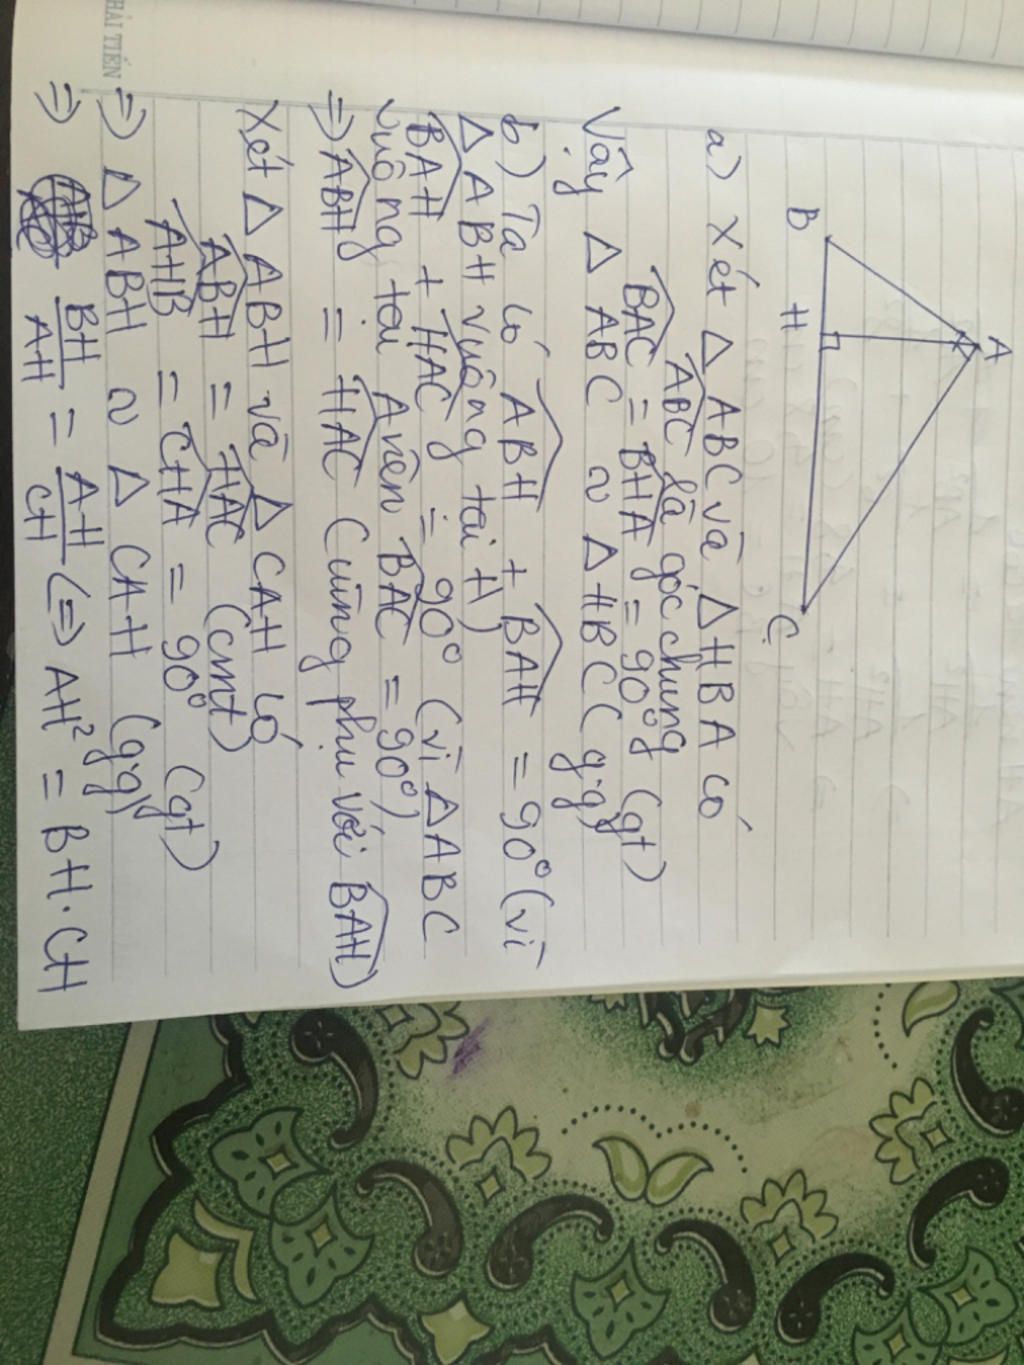 HẢI TIẾN
A
B
H
C
a) Xét Δ ABC và Δ HBA có
ABC là góc chung
BAC = BHA = 90° (gt)
Vậy Δ ABC ~ Δ HBC (g.g)
b) Ta có ABH + BAH = 90° (vì
Δ ABH vuông tại H)
BAH + HAC = 90° (vì Δ ABC
vuông tại A nên BAC = 90°)
=> ABH = HAC (cùng phụ với BAH)
Xét Δ ABH và Δ CAH có
ABH = HAC (cmt)
AHB = CHA = 90° (gt)
=> Δ ABH ~ Δ CAH (g.g)
=> BH/AH = AH/CH (=> AH² = BH.CH